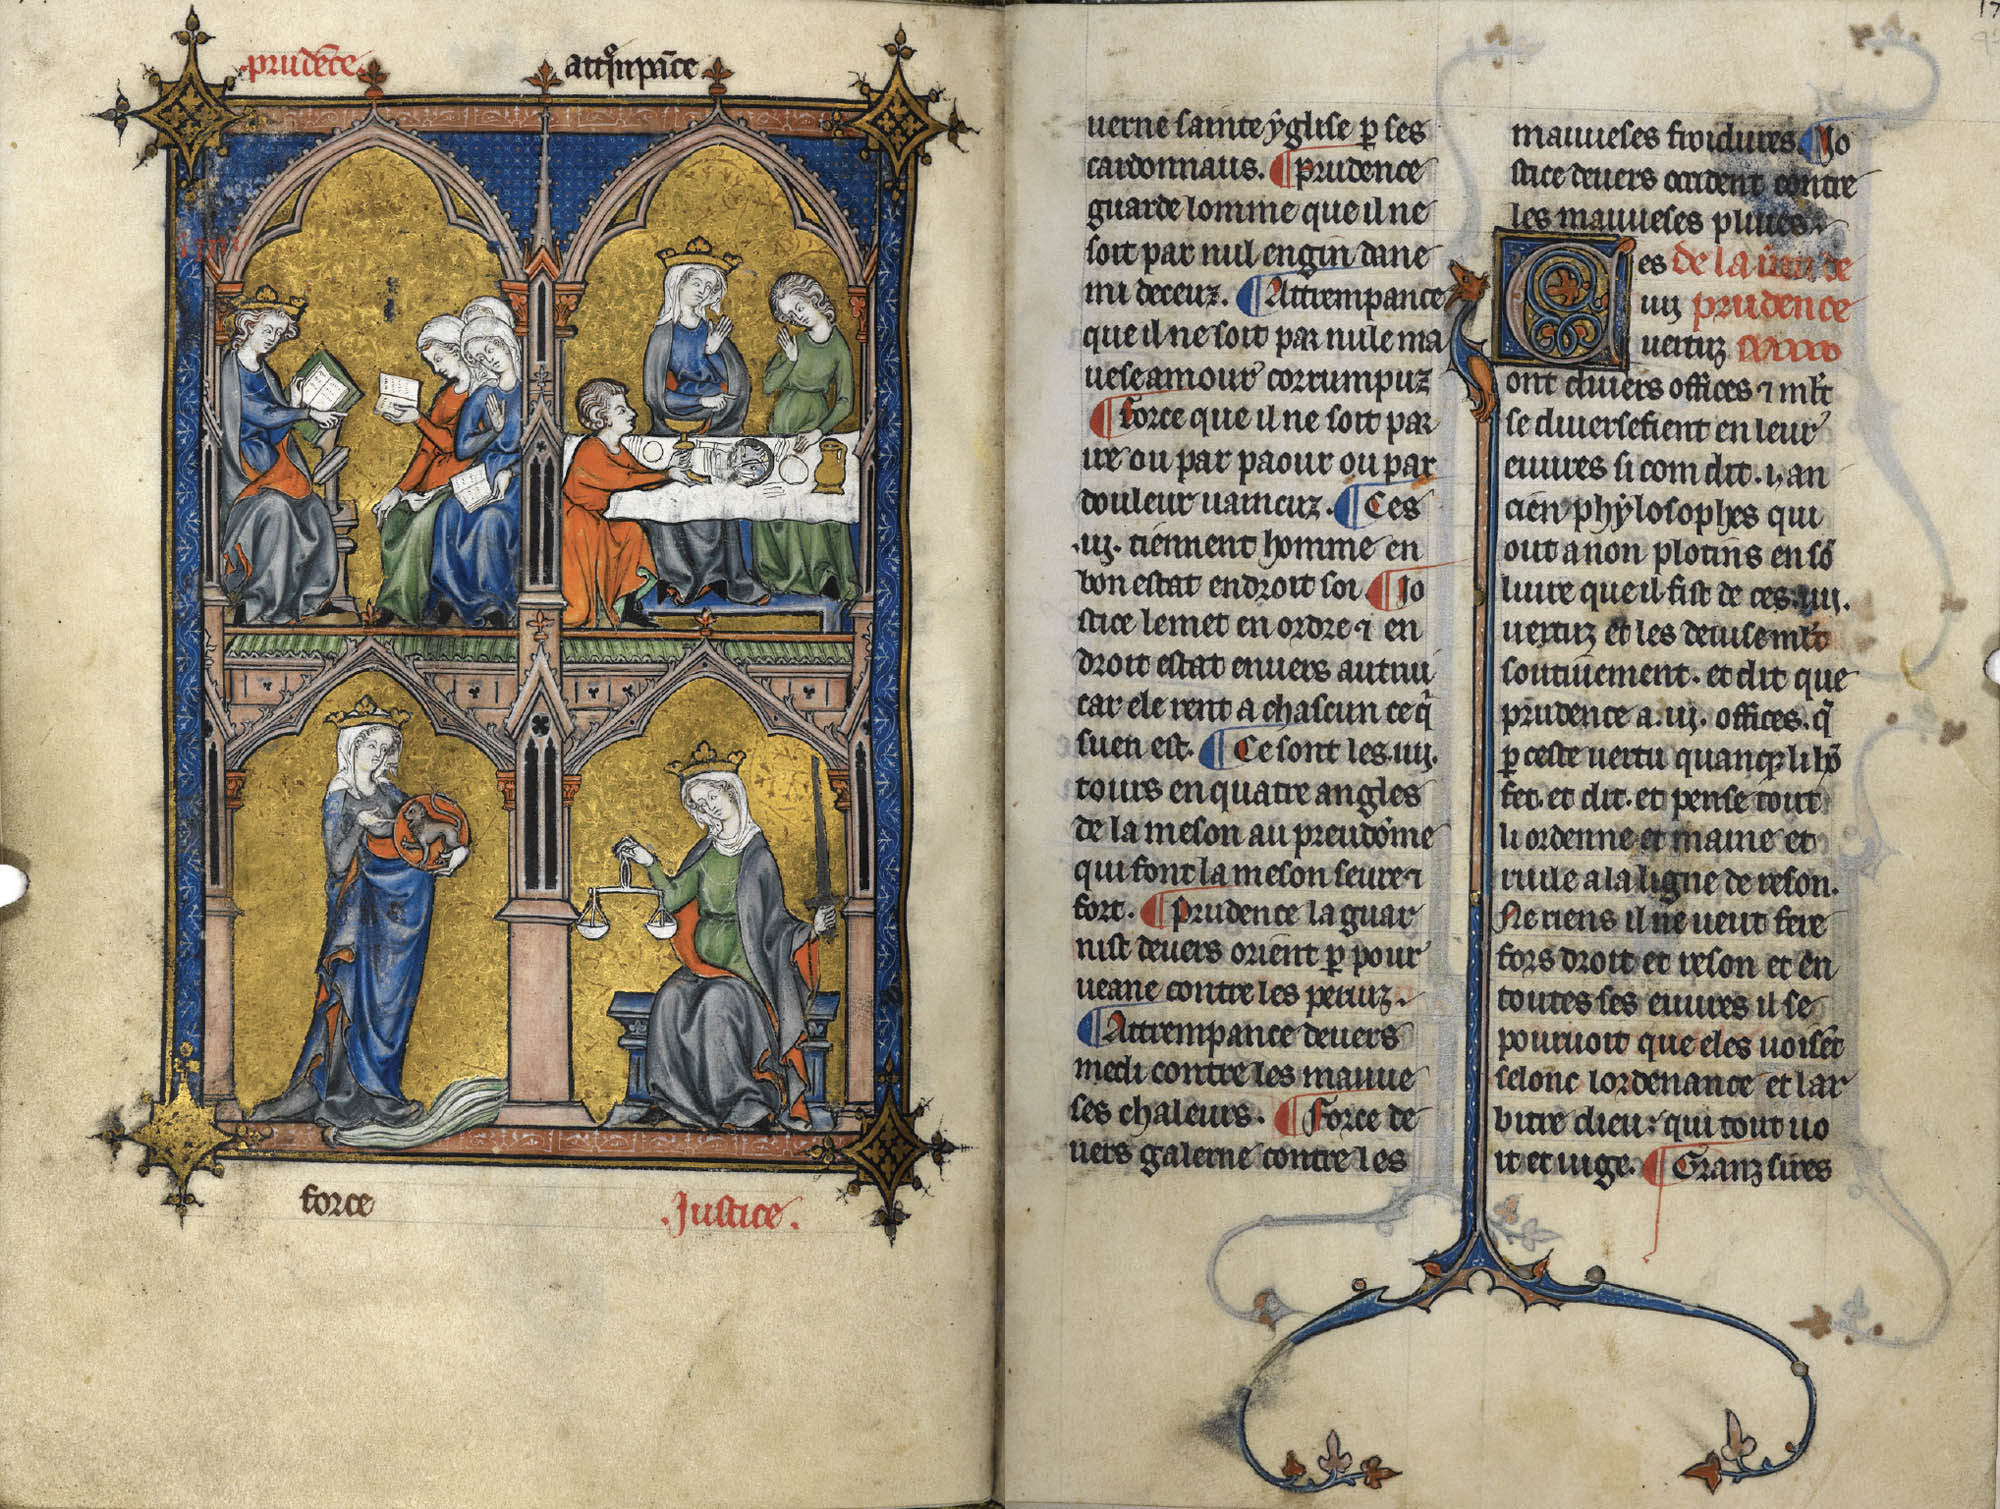 .prudēce.
attrēpāce
force
.Justice.
17
uerne sainte yglise p ses
cardonnaus. ¶ prudence
guarde lomme que il ne
soit par nul engin dane
mi deceuz. ¶ Attrempance
que il ne soit par nule ma
uese amour corrumpuz
¶ force que il ne soit par
ire ou par paour ou par
douleur uaincuz. ¶ Ces
.iij. tiennent homme en
bon estat endroit soi ¶ Jo
stice le met en ordre ⁊ en
droit estat enuers autrui
car ele rent a chascun ce q̄
suen est. ¶ Ce sont les .iiij.
tours en quatre angles
de la meson au preudōme
qui font la meson seure ⁊
fort. ¶ Prudence la guar
nist deuers orient p pour
ueance contre les periuz.
¶ Attrempance deuers
medi contre les mauue
ses chaleurs. ¶ Force de
uers galerne contre les
mauueses froidures. ¶ Jo
stice deuers occident contre
les mauueses pluies.
Ces de la
iiij prudence
uertuz
ont diuers offices ⁊ ml̄t
se diuersefient en leur
euures si com dit .i. an
cien phylosophes qui
out a non plotins en sō
liure que il fist de ces .iiij.
uertuz et les deuise ml̄t
soutiuement. et dit que
prudence a .iij. offices. q̄
p ceste uertu quanq li hō
fet. et dit. et pense tout
li ordenne et maine et
riule a la ligne de reson.
Ne riens il ne ueut fere
fors droit et reson et en
toutes ses euures il se
pouruoit que eles uoisēt
selonc lordenance et lar
bitre dieu: qui tout uo
it et iuge. ¶ Granz sires